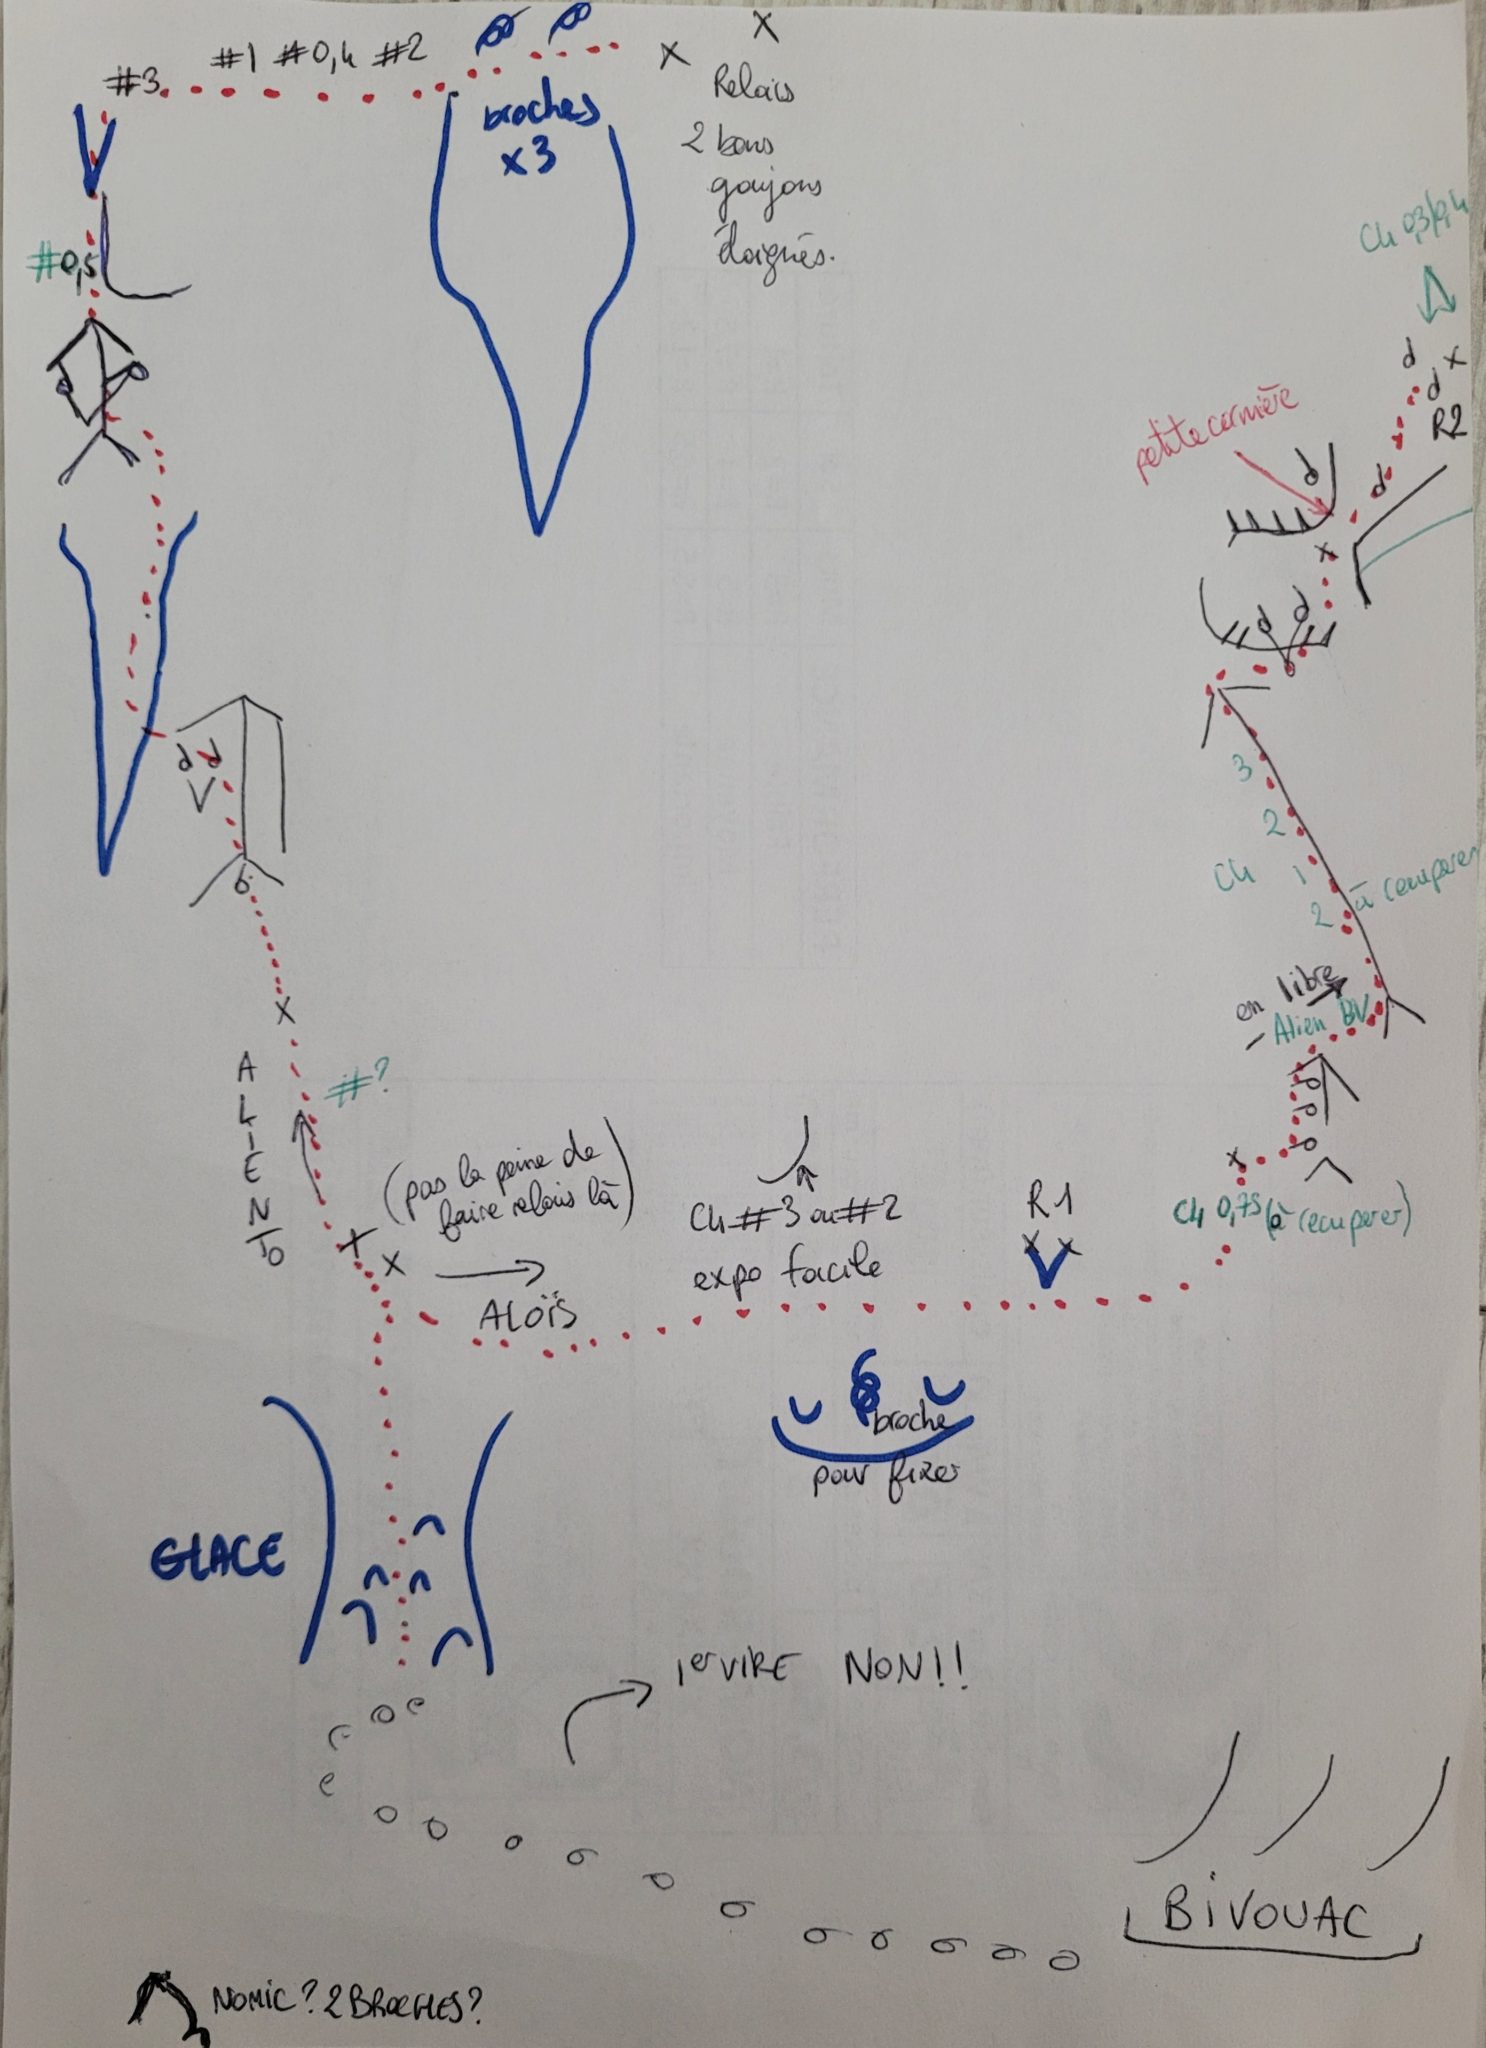 #1 #0,4 #2
#3
broches
x3
Relais
2 bons
goujons
éloignés.
#0,5
Ch 0,3/0,4
R2
petite cornière
3
2
Ch
1
2
à recuperer
en libre
Alien BV
Ch 0,75 (à recuperer)
ALIENTO
#?
(pas la peine de
faire relais là)
ALOÏS
Ch #3 ou #2
expo facile
R1
broche
pour fixer
GLACE
1er VIRE NON!!
BIVOUAC
NOMIC? 2 BROCHES?